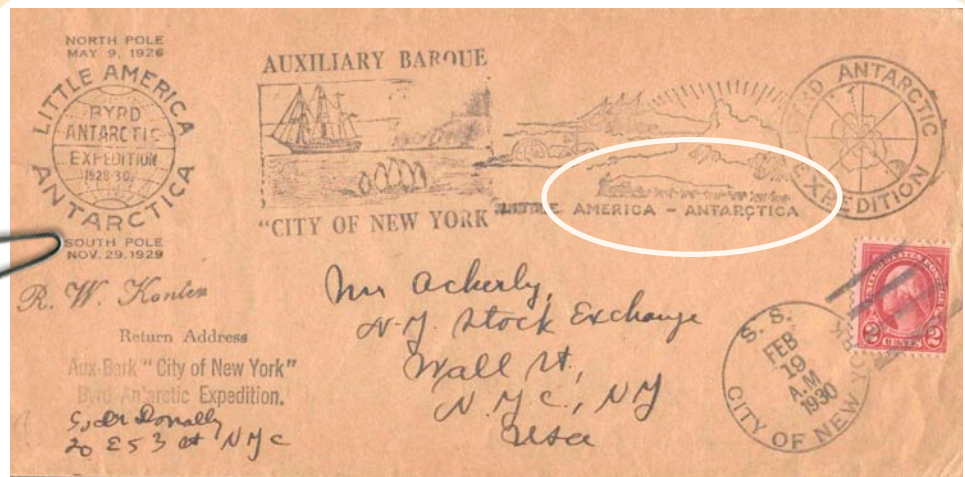 NORTH POLE
MAY 9, 1926
LITTLE AMERICA
BYRD
ANTARCTIC
EXPEDITION
1928-30.
ANTARCTICA
SOUTH POLE
NOV. 29. 1929
AUXILIARY BARQUE
"CITY OF NEW YORK
LITTLE AMERICA - ANTARCTICA
BYRD ANTARCTIC
EXPEDITION
R. W. Konter
Return Address
Aux. Bark "City of New York"
Byrd Antarctic Expedition.
20 E 53 st NYC
Mr Ackerly,
N.Y. Stock Exchange
Wall St,
N.Y.C., NY
USA
S. S.
FEB
19
A.M
1930
CITY OF NEW YORK
UNITED STATES POSTAGE
2 CENTS 2